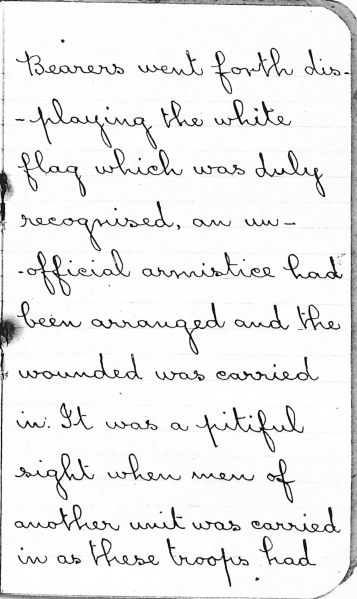 Bearers went forth dis-
-playing the white
flag which was duly
recognised, an un-
-official armistice had
been arranged and the
wounded was carried
in. It was a pitiful
sight when men of
another unit was carried
in as these troops had